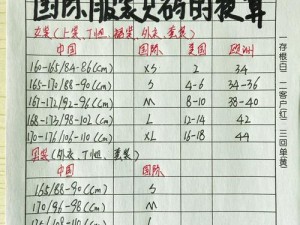 国际服装尺码的换算
女装(上装、丁恤、裙装、外衣、套装)
中国 国际 美国 欧洲
160-165/84-86(cm) XS 2 34
165-170/88-90(cm) S 4-6 34-36
167-172/92-96(cm) M 8-10 38-40
168-173/98-102(cm) L 12-14 42
170-176/106-110(cm) XL 16-18 44
男装(外衣、丁恤、套装)
中国 国际
165/88-90(cm) S
170/96-98(cm) M
175/108-110(cm) L
一存根白 二客户红 三回单黄